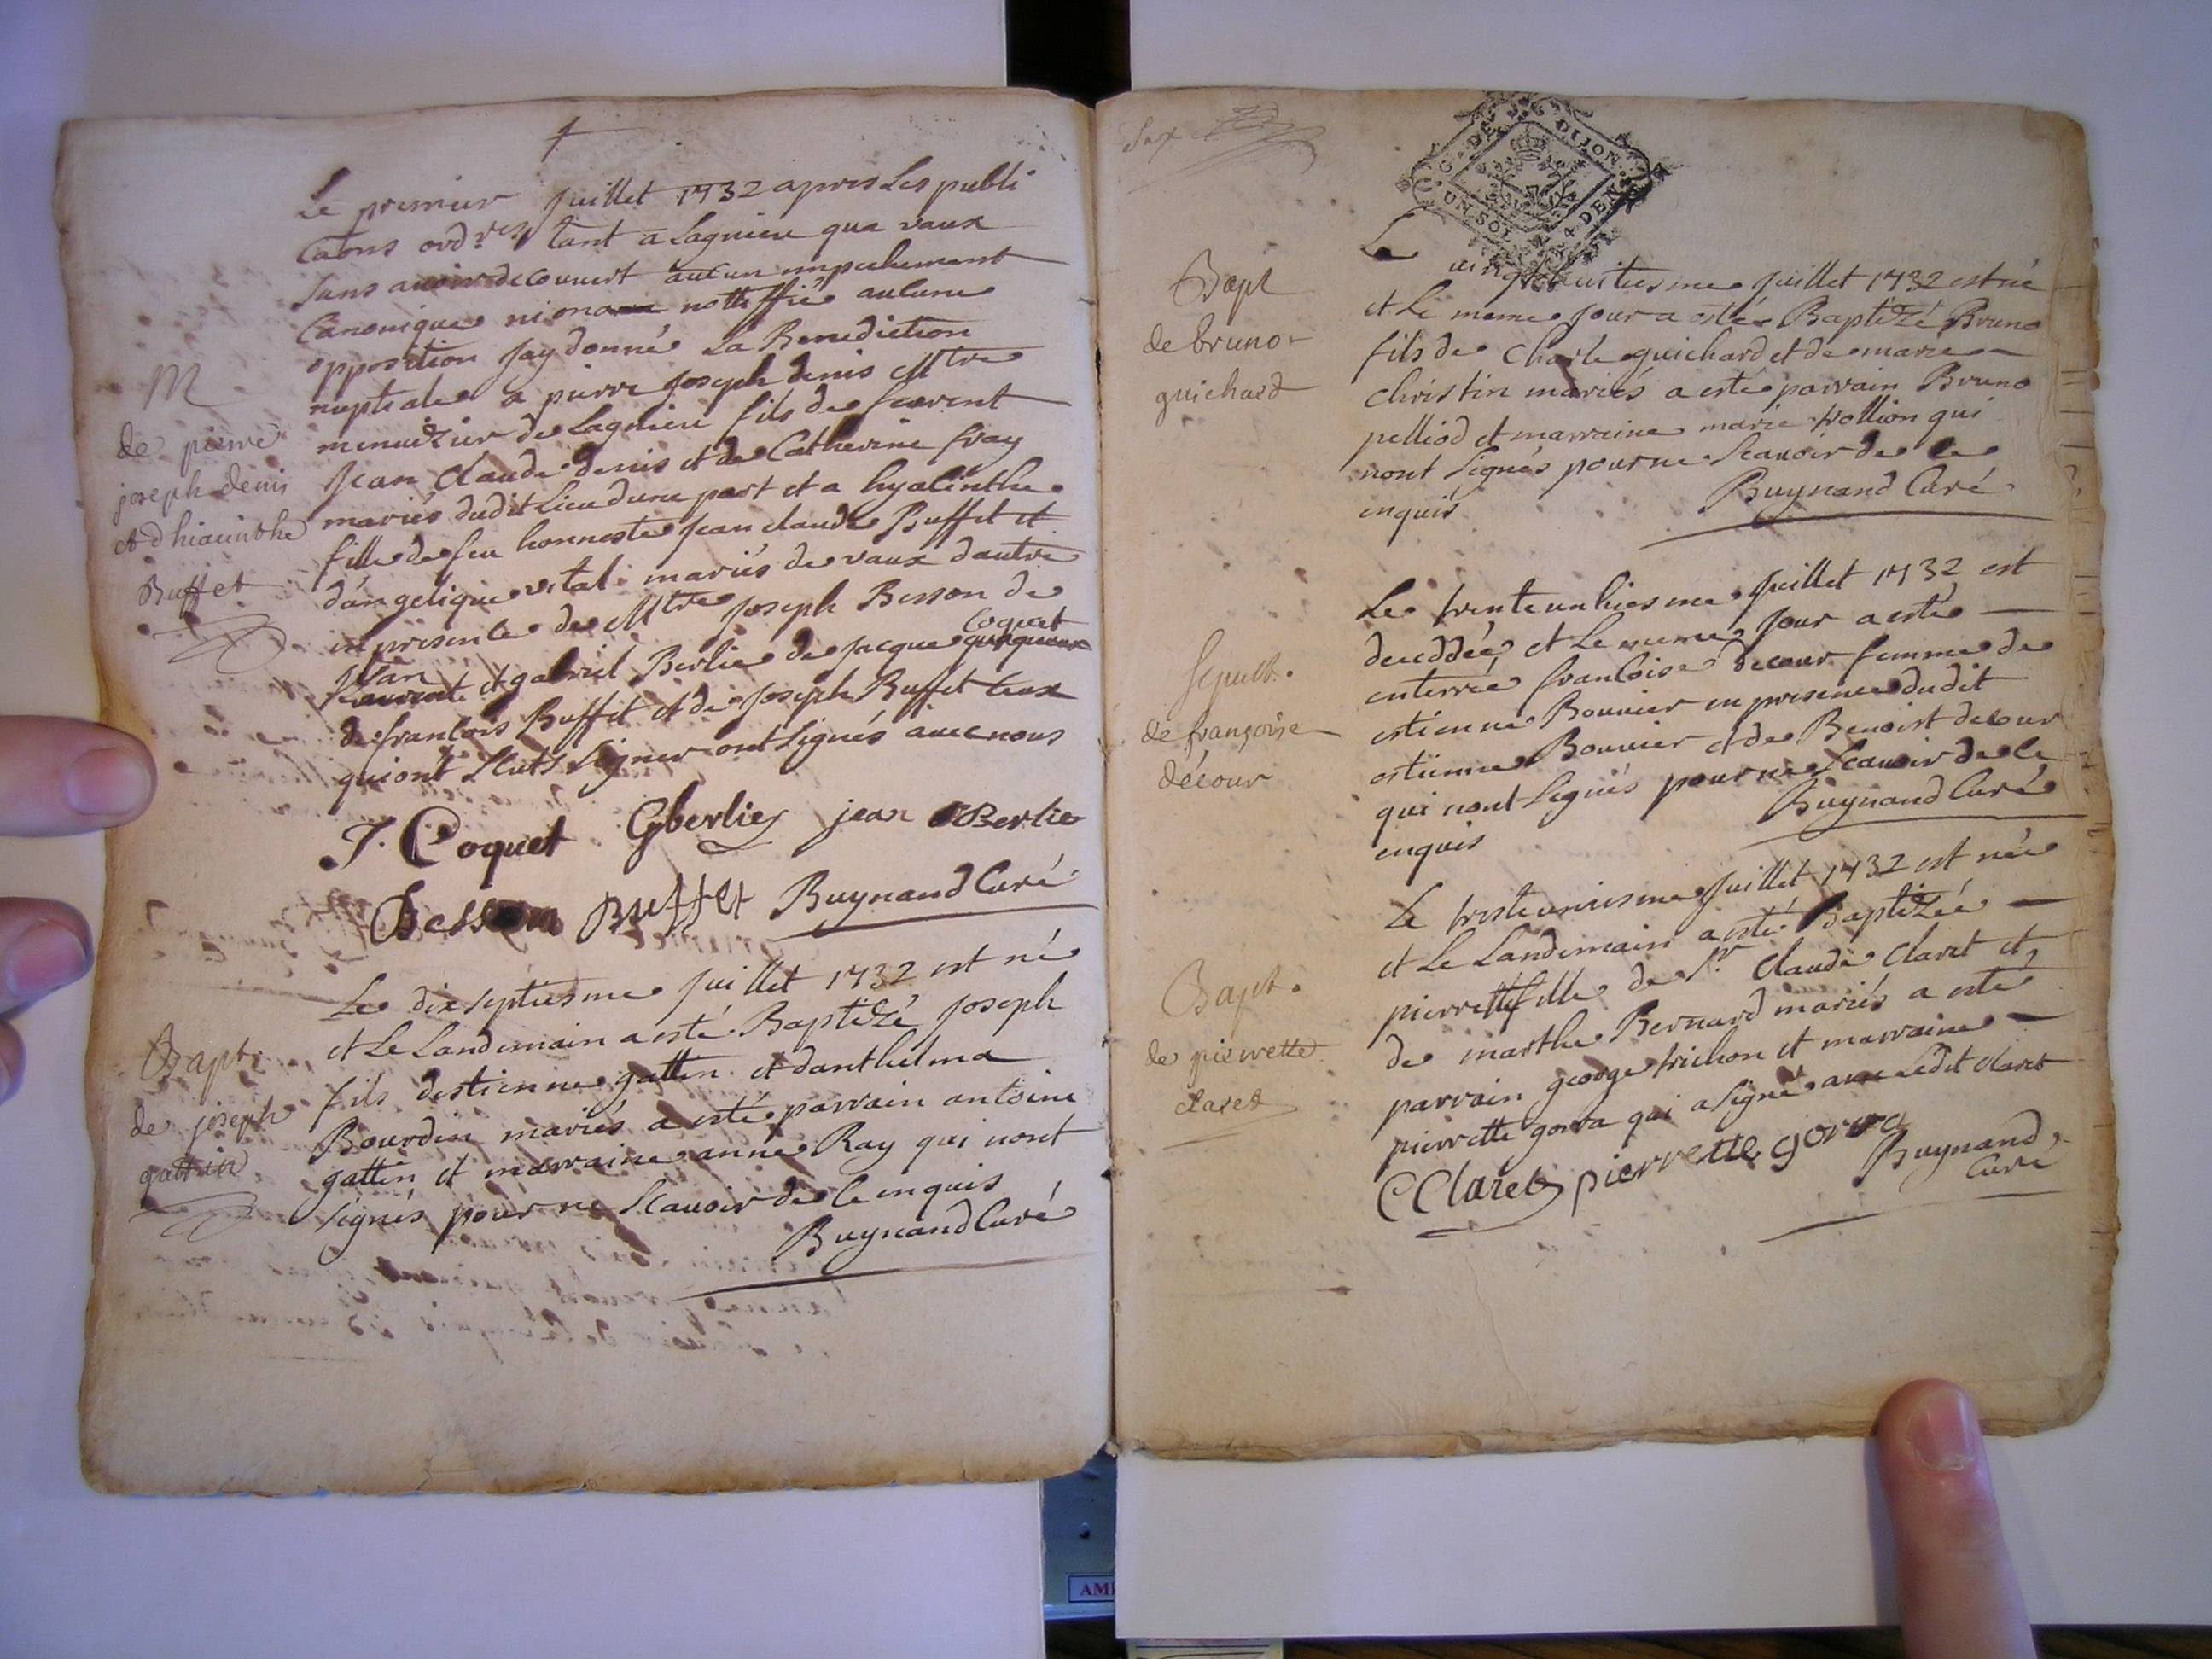 Le premier juillet 1732 apres les publi
caōns ordres tant a Lagnieu qua vaux
sans avoir decouvert aucun empechement
Canonique ni nottiffié aulcune
opposition jay donné La Benediction
nuptiale a pierre joseph denis Mtre
menuizier de Lagnieu fils de
jean Claude denis et de Catherine fray
mariés dudit Lieu dune part et a hyacinthe
fille de feu honneste jean claude Buffet et
dángelique vital mariés de vaux dautre
en presence de Mtre joseph Besson de
jean et gabriel Berlie de jacque Coquet
de francois Buffet et de joseph Buffet ceux
qui ont sceuts signer ont signés avec nous
J. Coquet Gberlie jean Berlie
Besson Buffet Buynand Curé
M
de pierre
joseph denis
et d hiacinthe
Buffet
Le dix septiesme juillet 1732 est né
et Le Landemain a esté Baptizé joseph
fils destienne gattin et danthelma
Bourdin mariés a esté parrain antoine
gattin et marraine anne Ray qui nont
signés pour ne scavoir de ce enquis
Buynand Curé
Bapt.
de joseph
gattin
G. DE DIJON
UN SOL 4 DEN
Le vingt huitiesme juillet 1732 est né
et Le meme jour a esté Baptizé Bruno
fils de Charle guichard et de marie
Christin mariés a esté parrain Bruno
pelliod et marraine marie trollion qui
nont signés pour ne scavoir de ce
enquis Buynand Curé
Bapt
de bruno
guichard
Le trente unhiesme juillet 1732 est
deceddée et Le meme jour a esté
enterrée francoise decour femme de
estienne Bouvier en presence dudit
estienne Bouvier et de Benoist decour
qui nont signés pour ne scavoir de ce
enquis Buynand Curé
Sepult.
de françoise
décour
Le trente uniesme juillet 1732 est née
et Le Landemain a esté Baptizée
pierrette fille de Sr. Claude Claret et
de marthe Bernard mariés a esté
parrain george trichon et marraine
pierrette gorra qui a signé avec Ledit Claret
CClaret pierrette gorra Buynand
Curé
Bapt.
de pierrette
claret